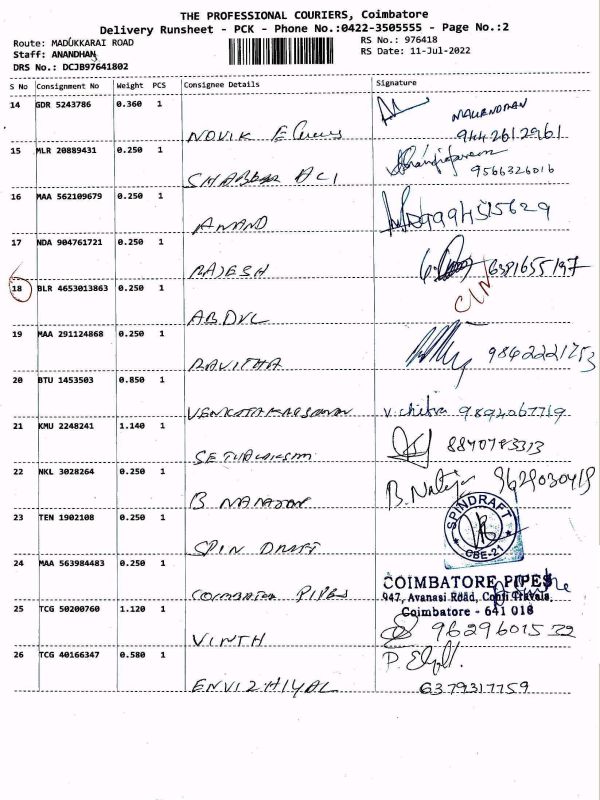 THE PROFESSIONAL COURIERS, Coimbatore
Delivery Runsheet - PCK - Phone No.:0422-3505555 - Page No.:2
Route: MADUKKARAI ROAD RS No.: 976418
Staff: ANANDHAN RS Date: 11-Jul-2022
DRS No.: DCJB97641802
S No Consignment No Weight PCS Consignee Details Signature
14 GDR 5243786 0.360 1
NOVIK 9442612961
15 MLR 20889431 0.250 1
SHABBER ALI 9566326016
16 MAA 562109679 0.250 1
ANAND 9994515629
17 NDA 904761721 0.250 1
RAJESH 6381655197
18 BLR 4653013863 0.250 1
ABDUL
19 MAA 291124868 0.250 1
KAVITHA
20 BTU 1453503 0.850 1
V. chitra
21 KMU 2248241 1.140 1
22 NKL 3028264 0.250 1
B. NATARAJAN B. Natraj 9629030419
23 TEN 1902108 0.250 1
SPIN DRAFT
SPINDRAFT
CBE-21
24 MAA 563984483 0.250 1
COIMBATORE PIPES
COIMBATORE PIPES
947, Avanasi Road,
Coimbatore - 641 018
25 TCG 50200760 1.120 1
VINTH 9629601532
26 TCG 40166347 0.580 1
ENVIZHIYAL 6379317759